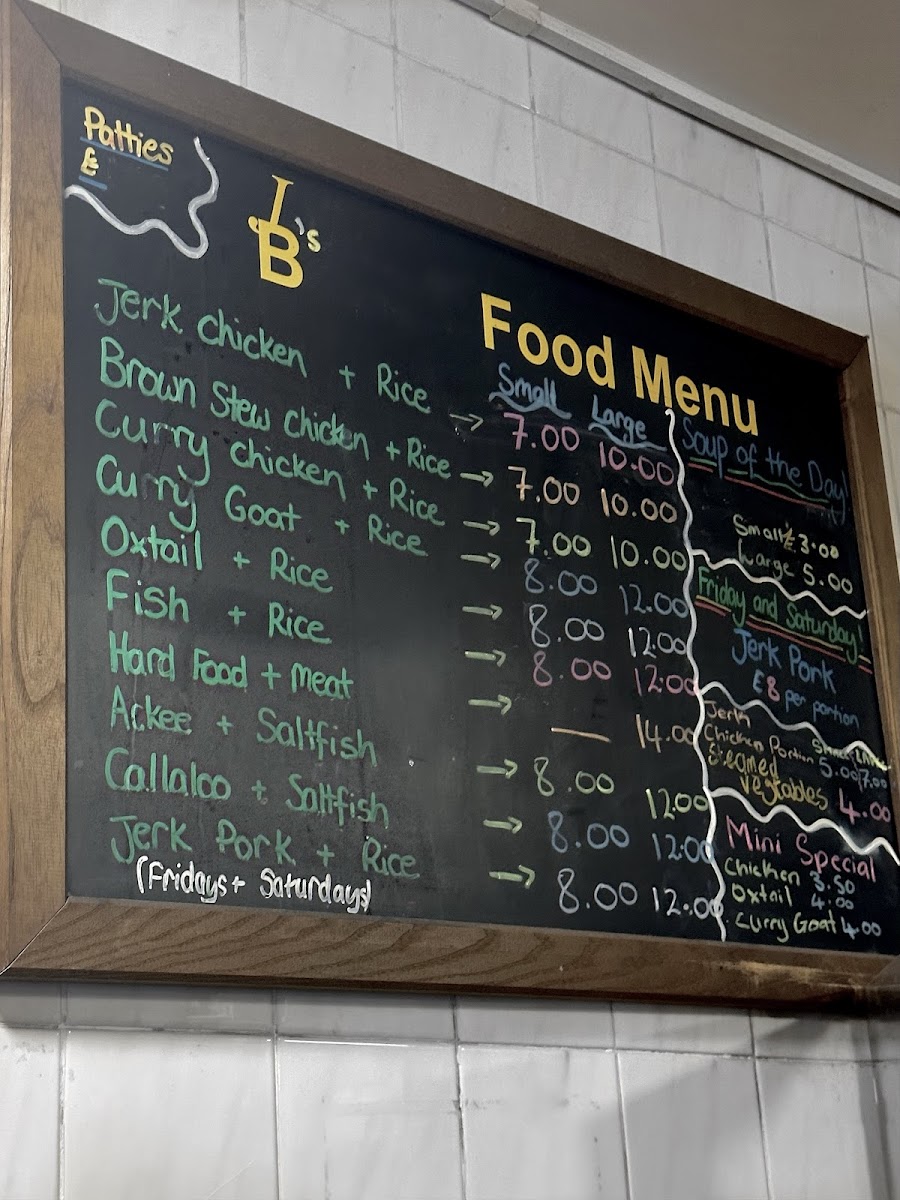 Patties
£
JB's
Food Menu
Small Large
Jerk chicken + Rice → 7.00 10.00
Brown Stew chicken + Rice → 7.00 10.00
Curry chicken + Rice → 7.00 10.00
Curry Goat + Rice → 8.00 12.00
Oxtail + Rice → 8.00 12.00
Fish + Rice → 8.00 12.00
Hard Food + meat → — 14.00
Ackee + Saltfish → 8.00 12.00
Callaloo + Saltfish → 8.00 12:00
Jerk Pork + Rice → 8.00 12.00
(Fridays + Saturdays)
Soup of the Day!
Small £3.00
Large 5.00
Friday and Saturday!
Jerk Pork
£8 per portion
Jerk
Chicken Portion 5.00/7.00
Steamed
vegtables 4.00
Mini Special
Chicken 3.50
Oxtail 4.00
Curry Goat 4.00